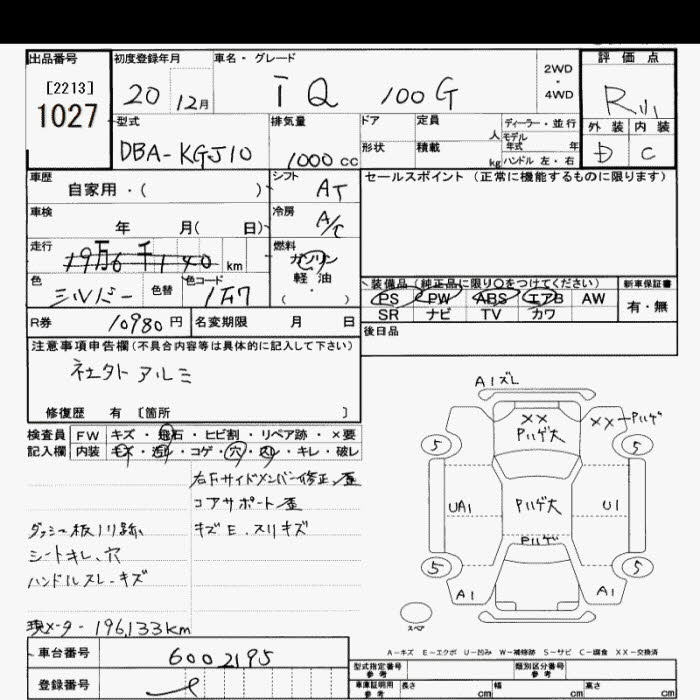 出品番号 初度登録年月 車名・グレード 2WD ・ 4WD 評価点
[2213] 1027 20 12月 IQ 100G R
外装 内装 D C
型式 DBA-KGJ10 排気量 1000cc ドア 定員 人 ディーラー・並行
形状 積載 kg モデル年式 年 ハンドル 左・右
車歴 自家用・( ) シフト AT セールスポイント (正常に機能するものに限ります)
車検 年 月( 日) 冷房 A/C
走行 19万6千140km 燃料 ガソリン 軽油 ・ ( )
色 シルバー 色替 色コード 1F7
装備品(純正品に限り○をつけてください) 新車保証書
PS PW ABS エアB AW 有・無
SR ナビ TV カワ
R券 10980円 名変期限 月 日 後日品
注意事項申告欄(不具合内容等は具体的に記入して下さい)
社外アルミ
修復歴 有 〔箇所 〕
検査員 FW キズ・飛石・ヒビ割・リペア跡・×要
記入欄 内装 キズ・汚レ・コゲ・穴・スレ・キレ・破レ
右Fサイドメンバー修正、歪
コアサポート歪
キズE、スリキズ
ダッシュ板ノリ跡
シートキレ、穴
ハンドルスレ-キズ
現メーター 196,133km
A1ズレ
XX Pハゲ大
XX-Pハゲ
5 5
UA1 Pハゲ大 U1
Pハゲ
5 5
A1 A1
スペア
A-キズ E-エクボ U-凹み W-補修跡 S-サビ C-腐食 XX-交換済
車台番号 6002195
登録番号
型式指定番号 参考 類別区分番号 参考
車庫証明用 参考 長さ cm 幅 cm 高さ cm